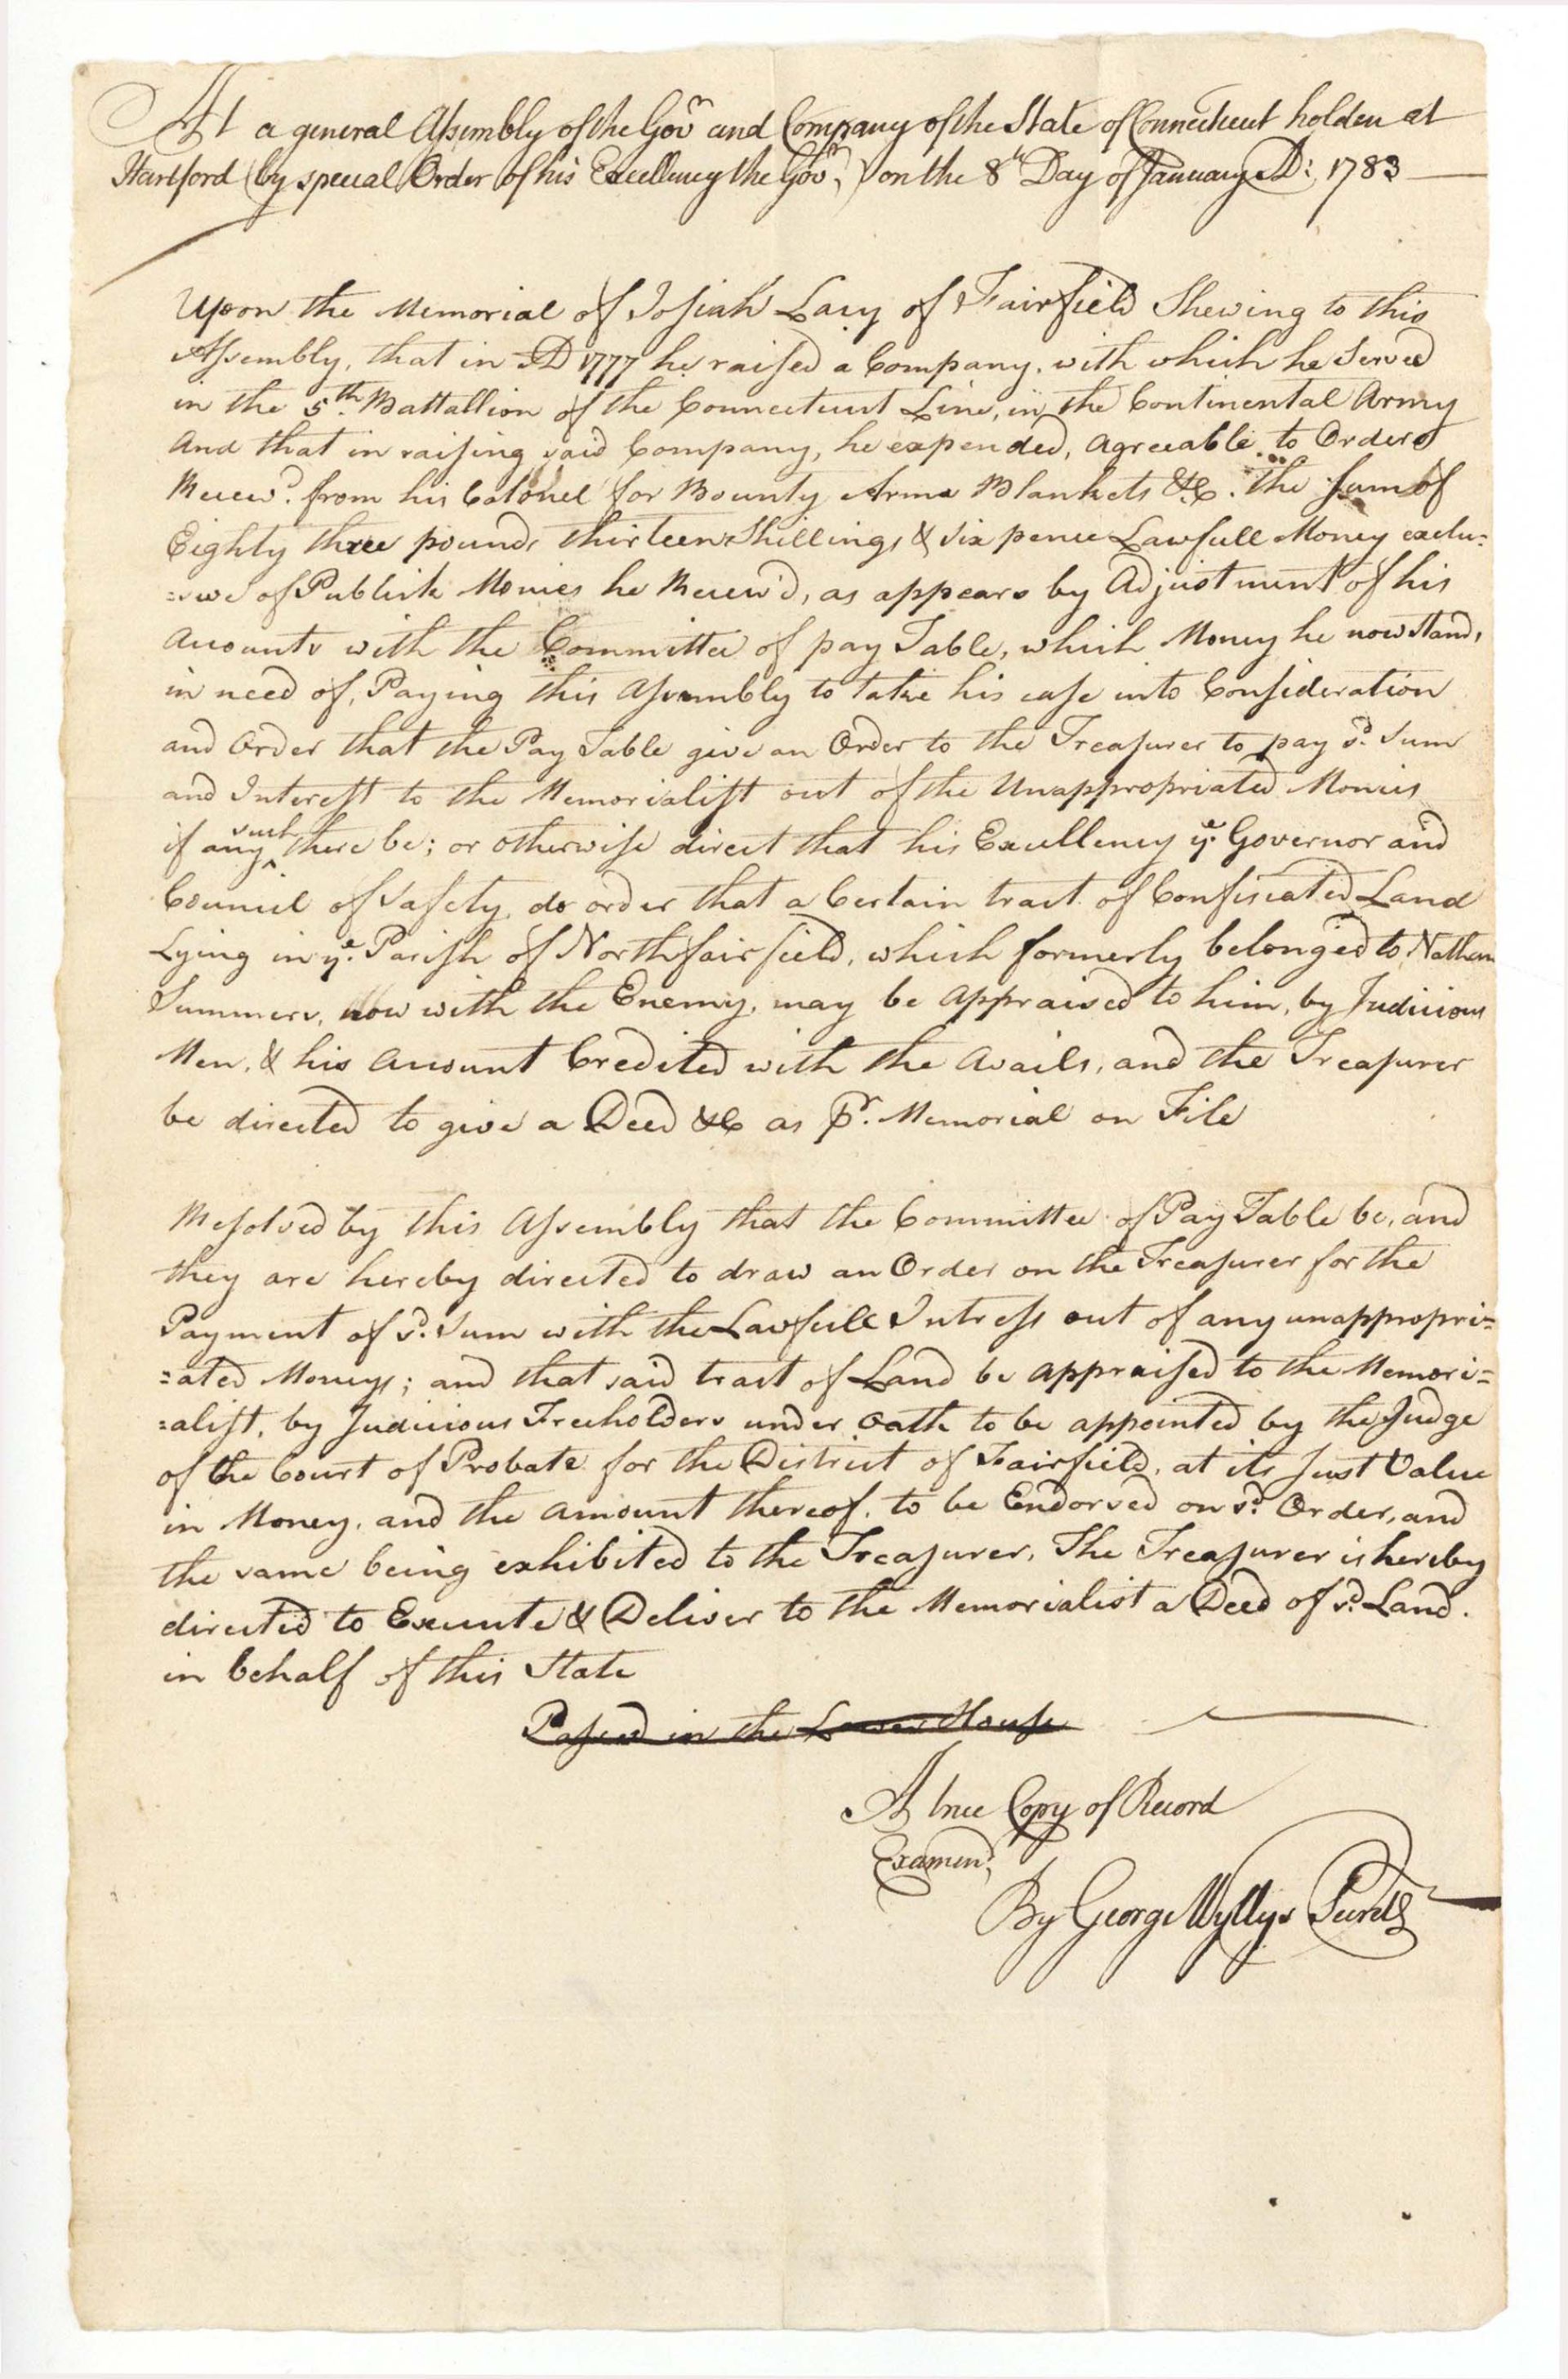 At a general Assembly of the Govr and Company of the State of Connecticut holden at
Hartford (by special Order of his Excellency the Govr,) on the 8th Day of January AD: 1783
Upon the Memorial of Josiah Lacy of Fairfield Shewing to this
Assembly, that in AD 1777 he raised a Company, with which he Served
in the 5th. Battallion of the Connecticut Line, in the Continental Army
And that in raising said Company, he expended, agreeable to Orders
Receivd. from his Colonel for Bounty Arms Blankets &c. the Sum of
Eighty three pounds thirteen Shillings & six pence Lawfull Money exclu=
=sive of Publick Monies he Receiv'd, as appears by Adjustment of his
Accounts with the Committee of pay Table, which Money he now stands
in need of, Paying this Assembly to take his case into Consideration
and Order that the Pay Table give an Order to the Treasurer to pay sd. Sum
and Interest to the Memorialist out of the Unappropriated Monies
if any such there be; or otherwise direct that his Excellency ye. Governor and
Council of Safety, do order that a Certain tract of Confiscated Land
Lying in ye. Parish of Northfairfield, which formerly belonged to Nathan
Summers, now with the Enemy, may be appraised to him, by Judicious
Men, & his Account Credited with the Avails, and the Treasurer
be directed to give a Deed &c as pr. Memorial on File
Resolved by this Assembly that the Committee of Pay Table be, and
they are hereby directed to draw an Order on the Treasurer for the
Payment of sd. Sum with the Lawfull Intress out of any unappropri=
=ated Moneys; and that said tract of Land be appraised to the Memori=
=alist, by Judicious Freeholders under oath to be appointed by the Judge
of the Court of Probate for the District of Fairfield, at its Just Value
in Money, and the amount thereof, to be Endorsed on sd. Order, and
the same being exhibited to the Treasurer, The Treasurer is hereby
directed to Execute & Deliver to the Memorialist a Deed of sd. Land.
in behalf of this State
Passed in the Lower House
A true Copy of Record
Examind,
By George Wyllys Secrety